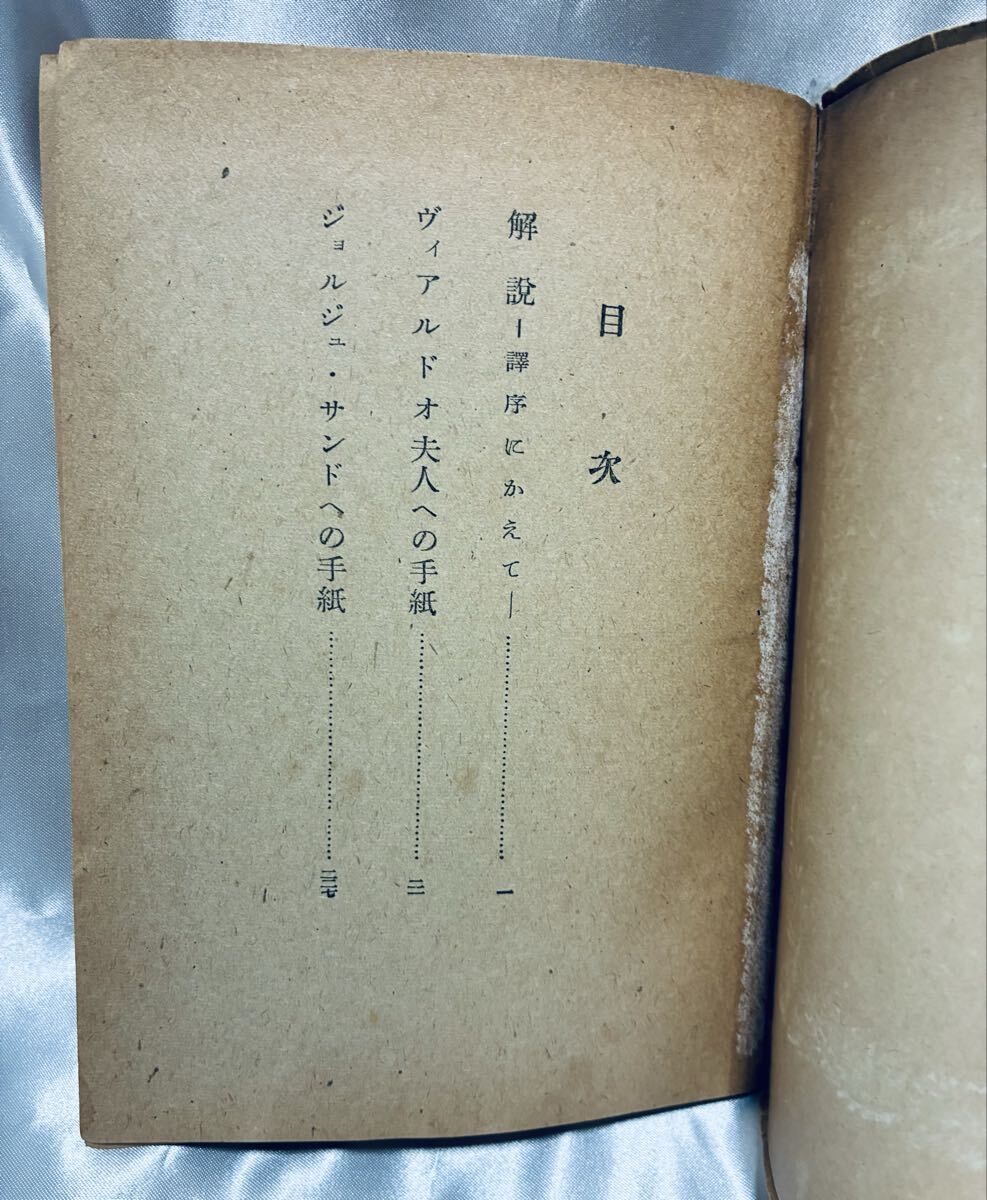 目次
解説―譯序にかえて―……………………………一
ヴィアルドオ夫人への手紙……………………………
ジョルジュ・サンドへの手紙……………………………